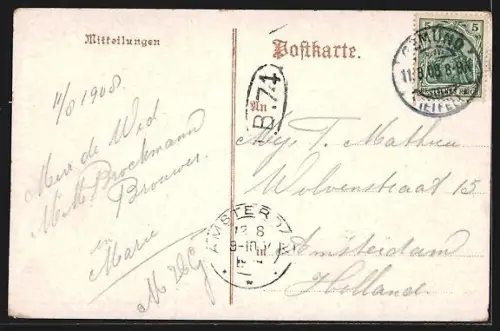 Mitteilungen
Postkarte.
5 5
GEMÜND
11.8.08 8-9
(EIFEL)
11/8 1908.
An
B.74
Mevr de Wed
M. M. Brockmann
Brouwer
en
Marie
Mej. T. Mathea
Wolvenstraat 15
in
Amsterdam
Holland.
AMSTERD
13 8
9-10